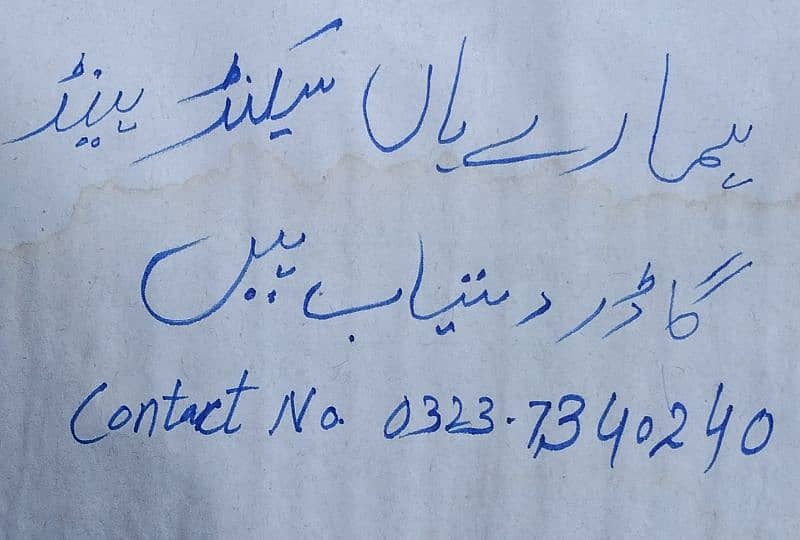 ہمارے ہاں سیکنڈ ہینڈ
گاڈر دستیاب ہیں
Contact No. 0323-7340240